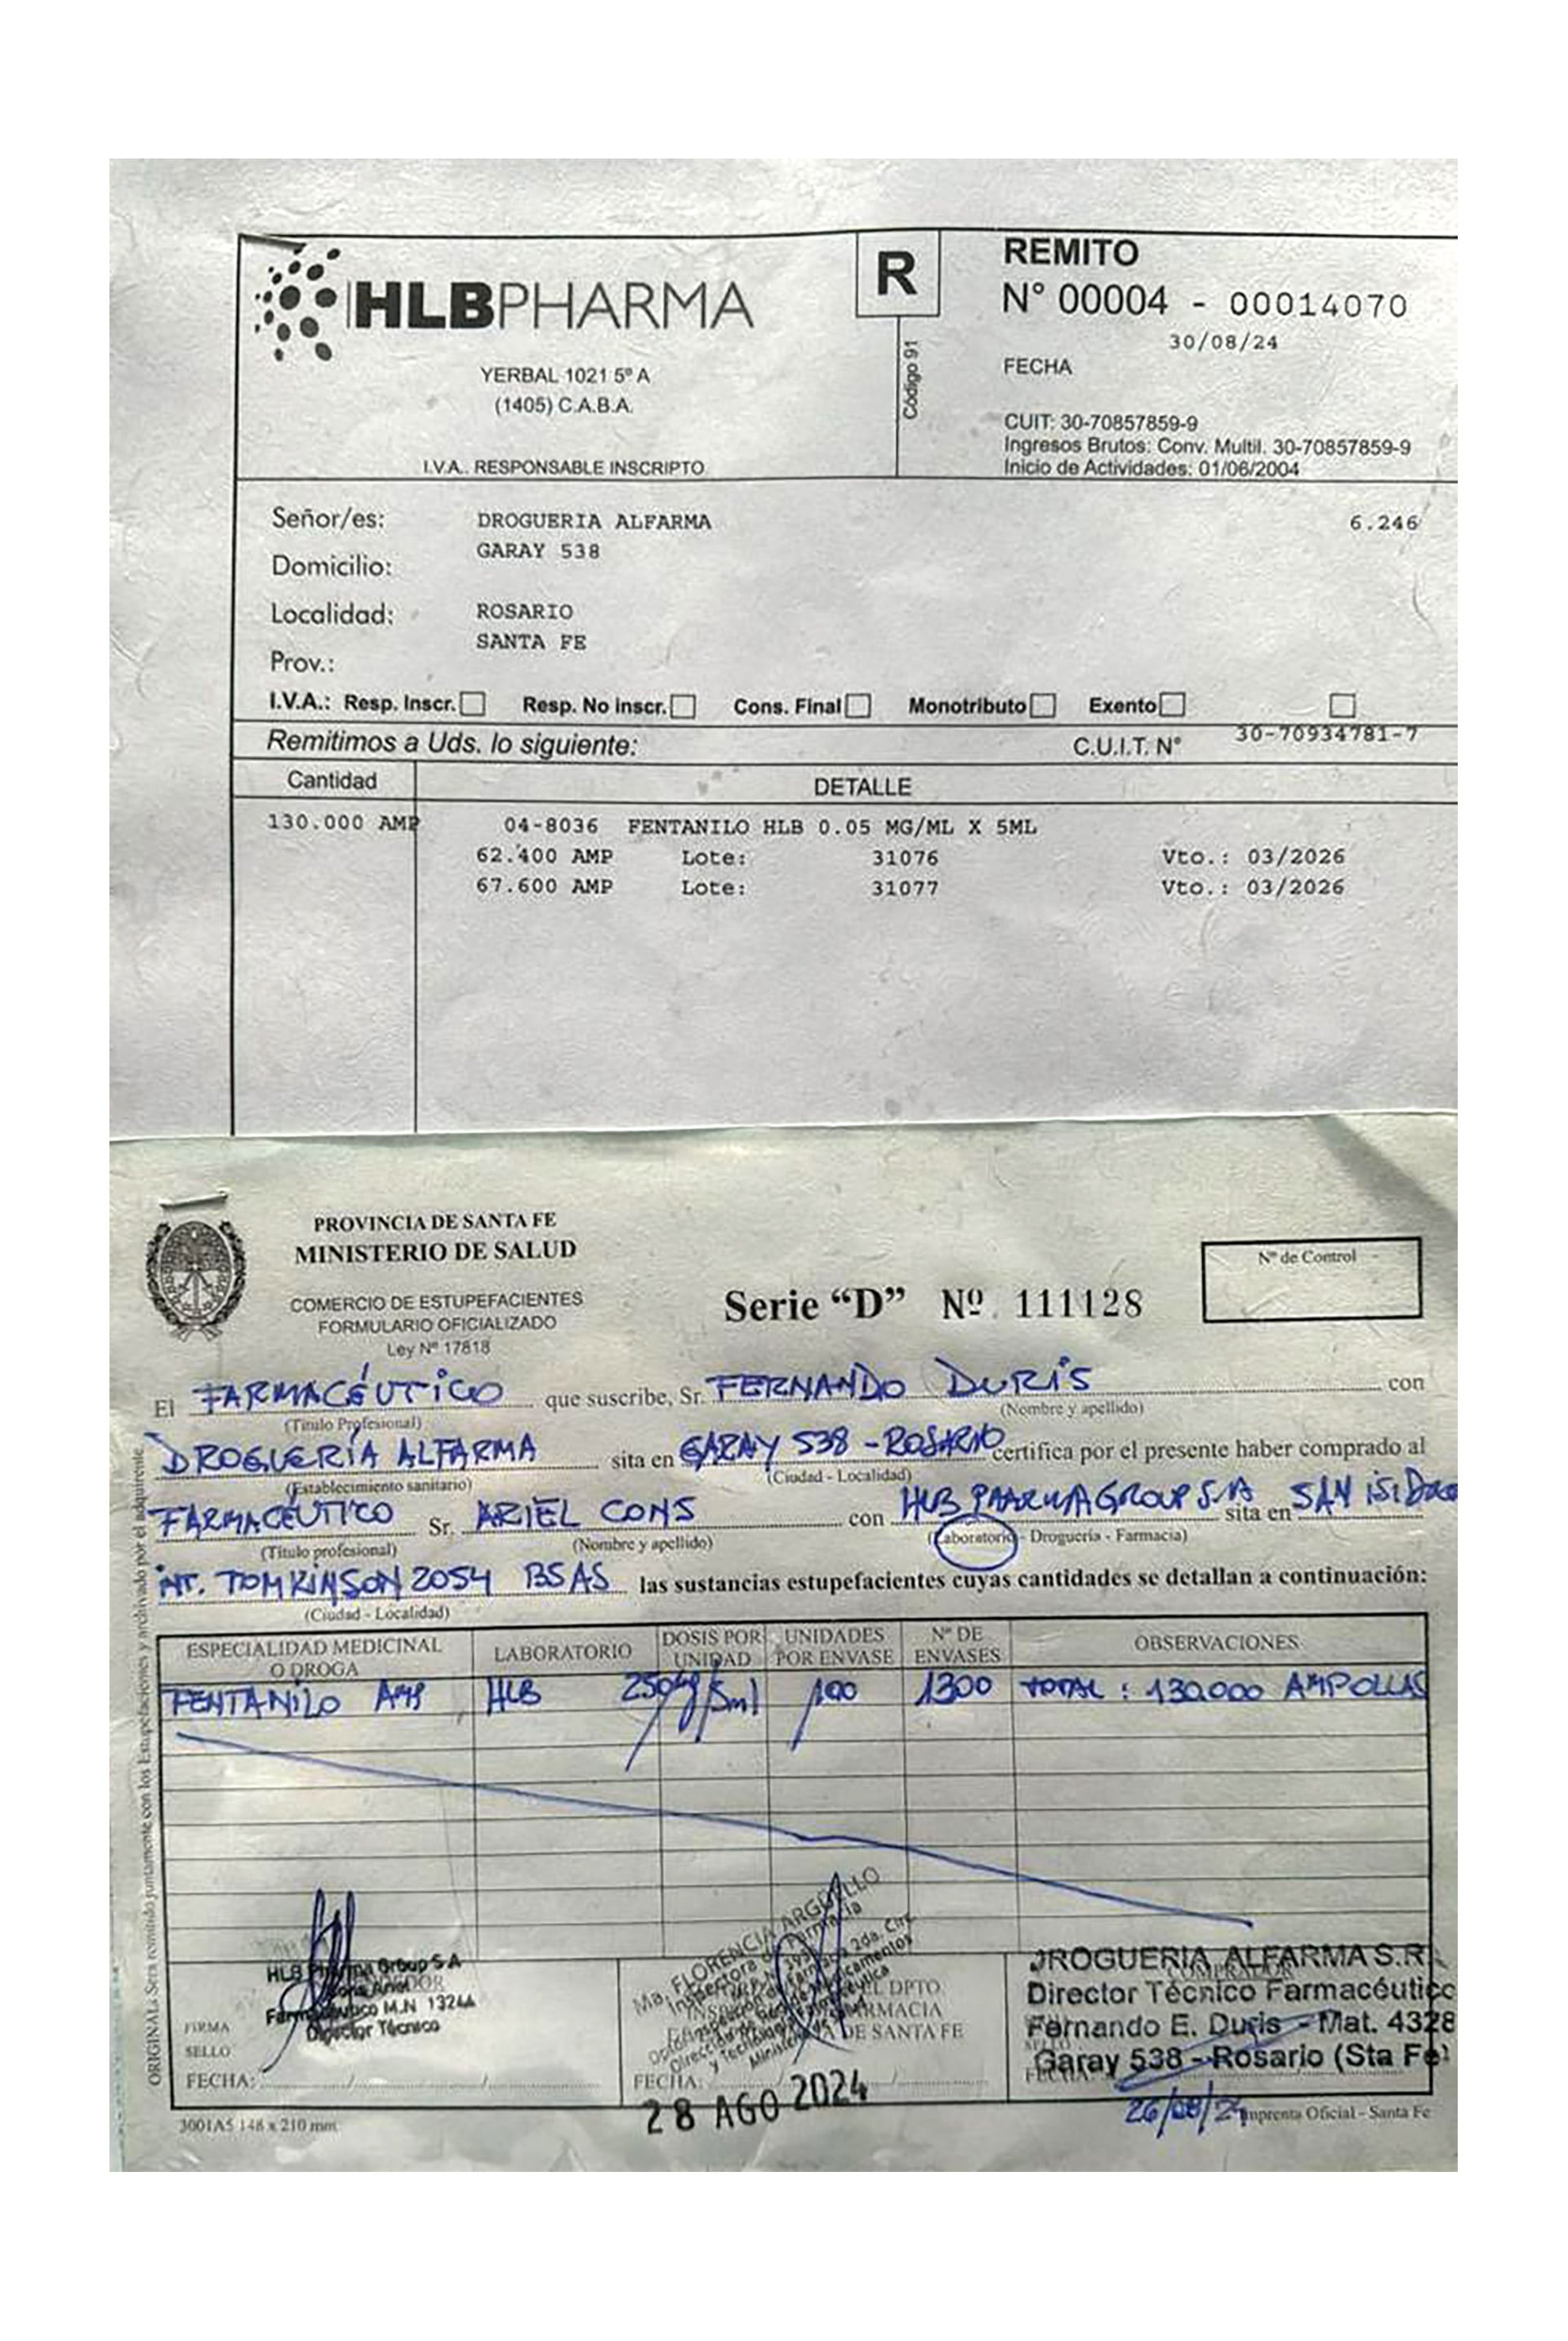 HLBPHARMA
YERBAL 1021 5º A
(1405) C.A.B.A.
I.V.A.. RESPONSABLE INSCRIPTO
R
Código 91
REMITO
N° 00004 - 00014070
30/08/24
FECHA
CUIT: 30-70857859-9
Ingresos Brutos: Conv. Multil. 30-70857859-9
Inicio de Actividades: 01/06/2004
Señor/es: DROGUERIA ALFARMA 6.246
GARAY 538
Domicilio:
Localidad: ROSARIO
SANTA FE
Prov.:
I.V.A.: Resp. Inscr. Resp. No inscr. Cons. Final Monotributo Exento
Remitimos a Uds. lo siguiente: C.U.I.T. N° 30-70934781-7
Cantidad DETALLE
130.000 AMP 04-8036 FENTANILO HLB 0.05 MG/ML X 5ML
62.400 AMP Lote: 31076 Vto.: 03/2026
67.600 AMP Lote: 31077 Vto.: 03/2026
PROVINCIA DE SANTA FE
MINISTERIO DE SALUD
COMERCIO DE ESTUPEFACIENTES
FORMULARIO OFICIALIZADO
Ley Nº 17818
Serie “D” Nº. 111128
Nº de Control
El FARMACÉUTICO que suscribe, Sr. FERNANDO DURIS con
(Titulo Profesional) (Nombre y apellido)
DROGUERÍA ALFARMA sita en GARAY 538 - ROSARIO certifica por el presente haber comprado al
(Establecimiento sanitario) (Ciudad - Localidad)
FARMACÉUTICO Sr. ARIEL CONS con HLB PHARMA GROUP S.A sita en SAN ISIDRO
(Título profesional) (Nombre y apellido) (Laboratorio - Droguería - Farmacia)
INT. TOMKINSON 2054 BSAS las sustancias estupefacientes cuyas cantidades se detallan a continuación:
(Ciudad - Localidad)
ESPECIALIDAD MEDICINAL O DROGA LABORATORIO DOSIS POR UNIDAD UNIDADES POR ENVASE Nº DE ENVASES OBSERVACIONES
FENTANILO AMP HLB 250µg/5ml 100 1300 TOTAL : 130.000 AMPOLLAS
ORIGINAL: Sera remitido juntamente con los Estupefacientes y archivado por el adquirente
HLB Pharma Group S.A
Cons Ariel
Farmacéutico M.N 13244
Director Técnico
FIRMA
SELLO
FECHA:
Ma. FLORENCIA ARGÜELLO
Inspectora de Farmacia
DPTO
FARMACIA
DE SANTA FE
FECHA:
28 AGO 2024
DROGUERIA ALFARMA S.R.
Director Técnico Farmacéutico
Fernando E. Duris - Mat. 4328
Garay 538 - Rosario (Sta Fe)
FECHA:
26/08/24
3001A5 148 x 210 mm
Imprenta Oficial - Santa Fe